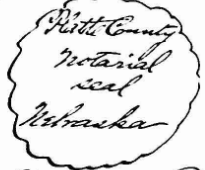 Platte County
Notarial
seal
Nebraska